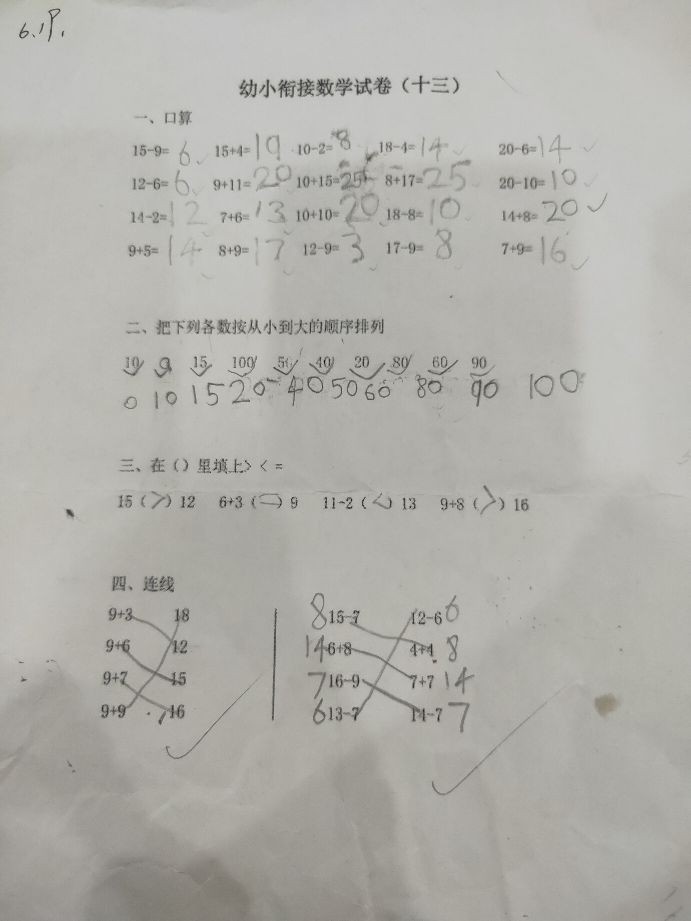 6.19.
幼小衔接数学试卷（十三）
一、口算
15-9= 6 15+4= 19 10-2= 8 18-4= 14 20-6= 14
12-6= 6 9+11= 20 10+15= 25 8+17= 25 20-10= 10
14-2= 12 7+6= 13 10+10= 20 18-8= 10 14+8= 20
9+5= 14 8+9= 17 12-9= 3 17-9= 8 7+9= 16
二、把下列各数按从小到大的顺序排列
10 0 15 100 50 40 20 80 60 90
0 10 15 20 40 50 60 80 90 100
三、在（）里填上> < =
15（>）12 6+3（=）9 11-2（<）13 9+8（>）16
四、连线
9+3 18 8 15-7 12-6 6
9+6 12 14 6+8 4+4 8
9+7 15 7 16-9 7+7 14
9+9 16 6 13-7 14-7 7